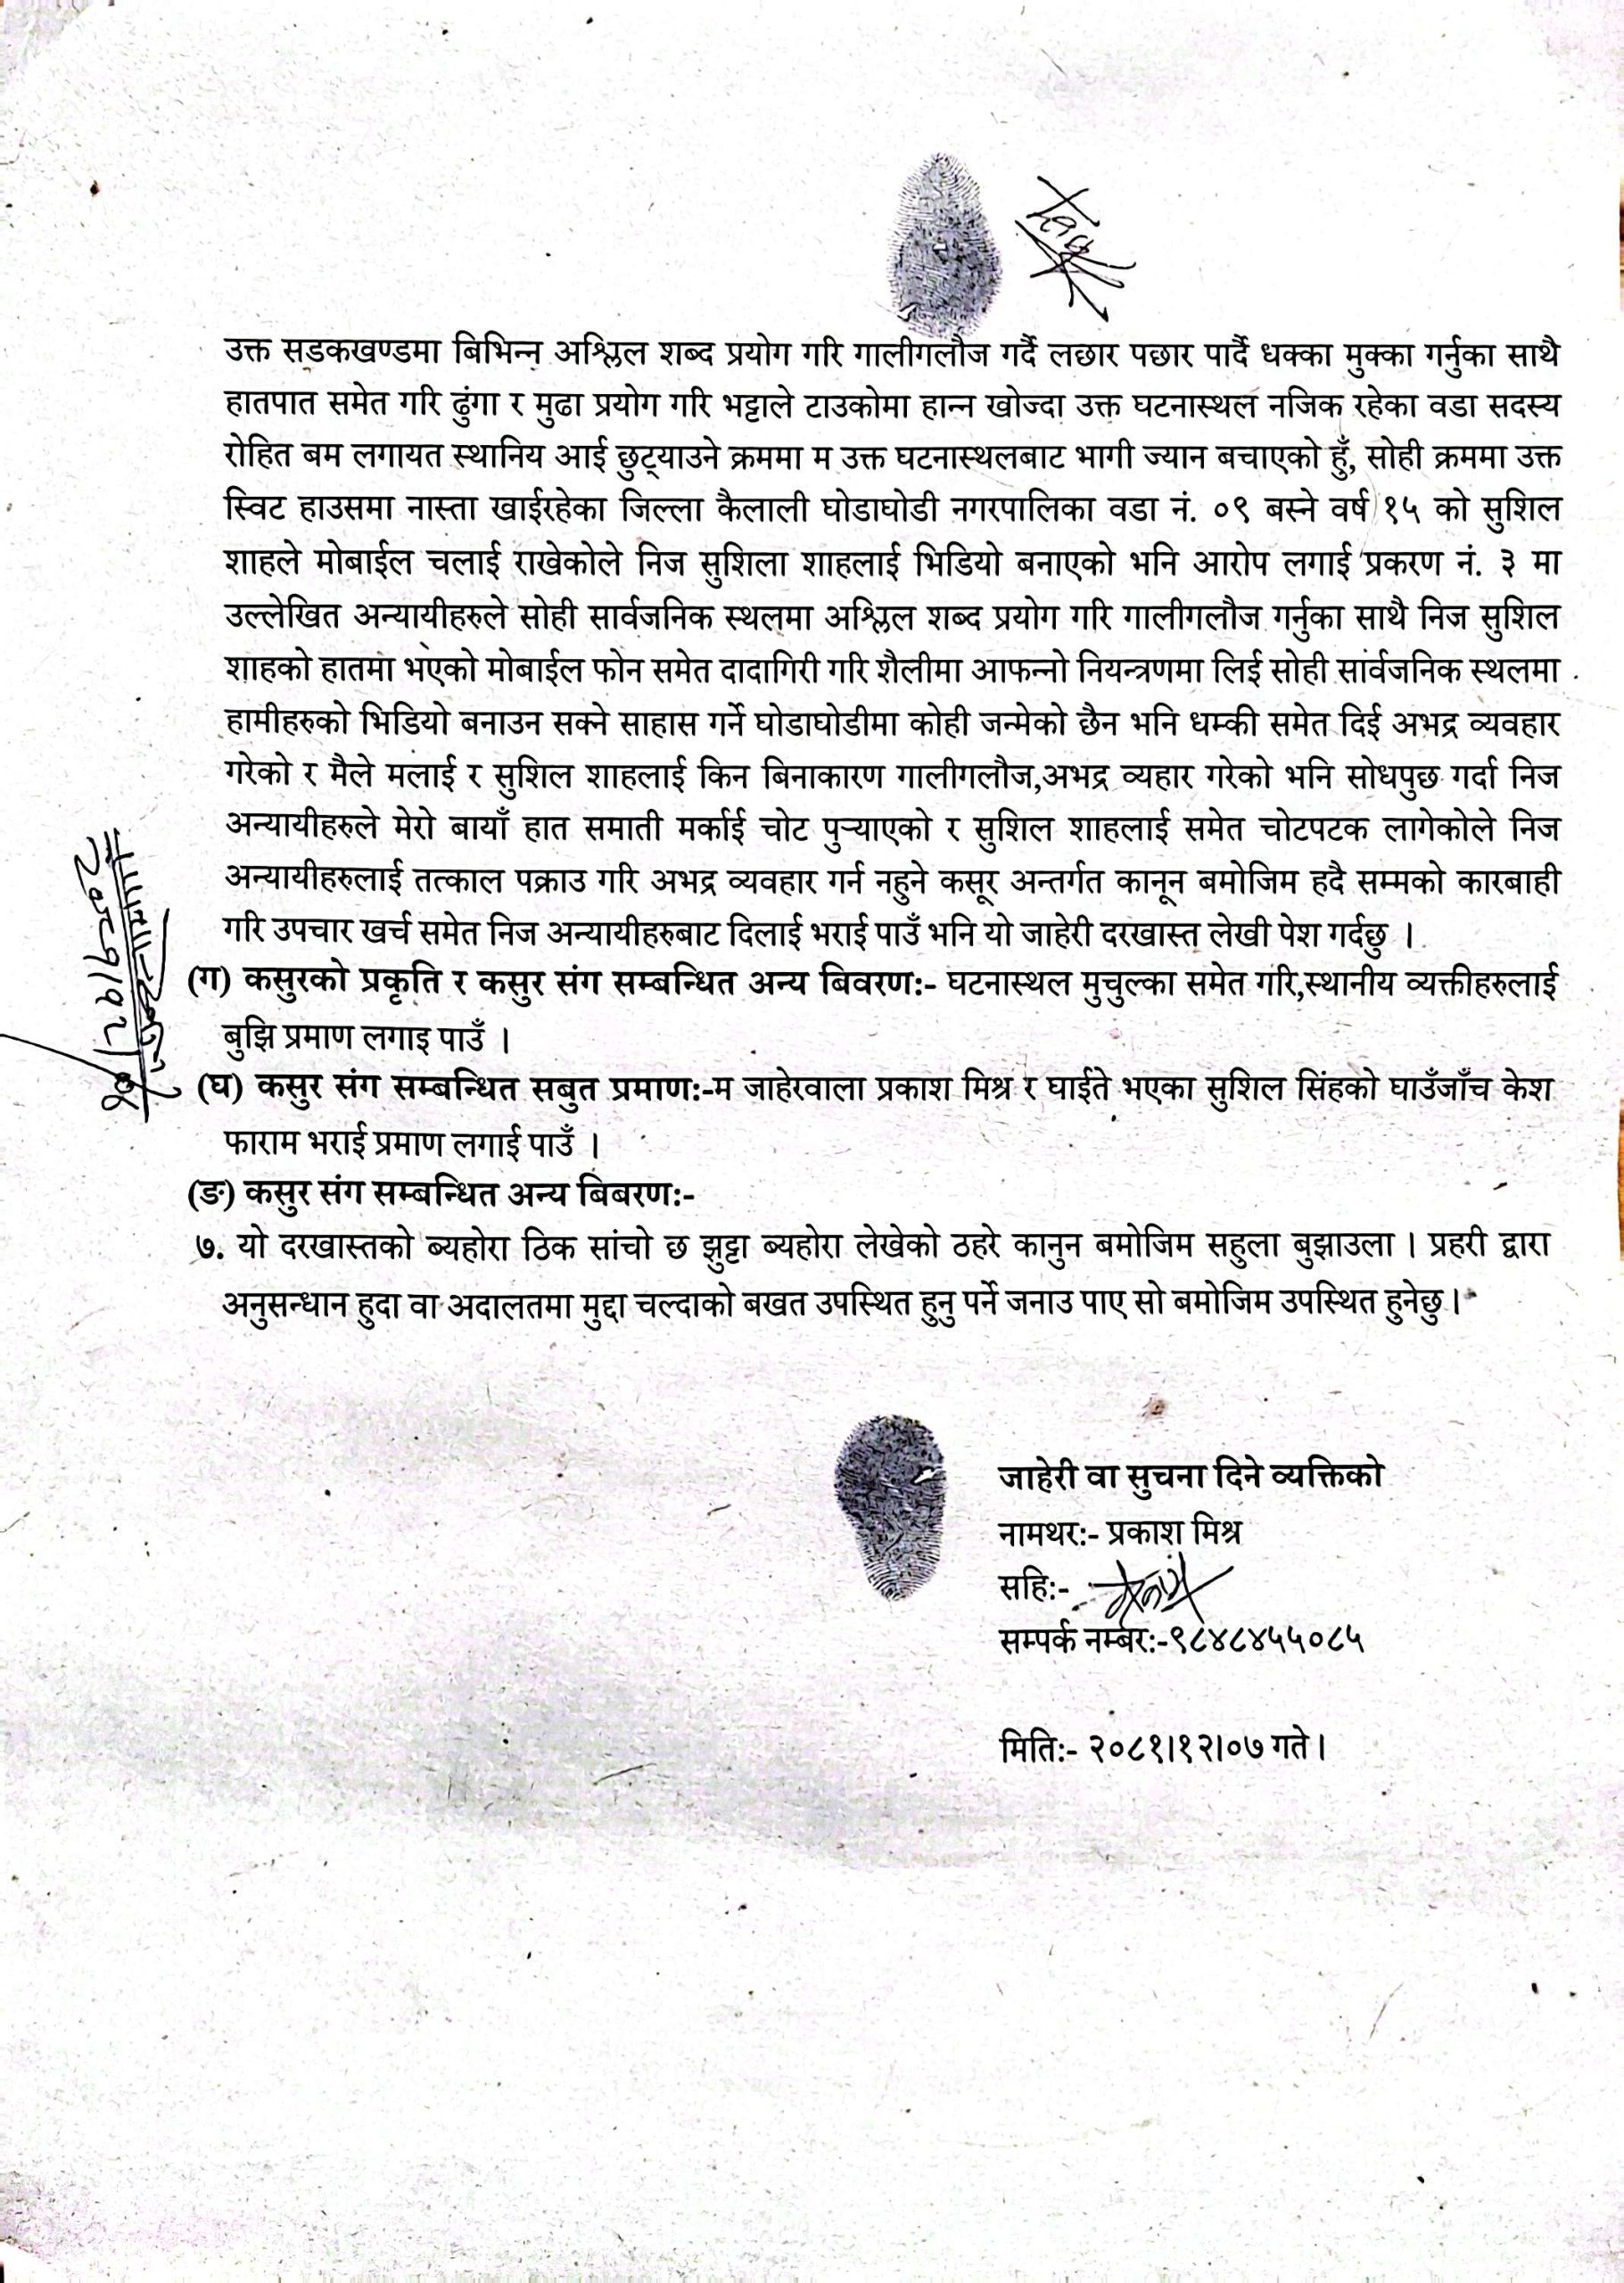 उक्त सडकखण्डमा बिभिन्न अश्लिल शब्द प्रयोग गरि गालीगलौज गर्दै लछार पछार पार्दै धक्का मुक्का गर्नुका साथै
हातपात समेत गरि ढुंगा र मुढा प्रयोग गरि भट्टाले टाउकोमा हान्न खोज्दा उक्त घटनास्थल नजिक रहेका वडा सदस्य
रोहित बम लगायत स्थानिय आई छुट्याउने क्रममा म उक्त घटनास्थलबाट भागी ज्यान बचाएको हुँ, सोही क्रममा उक्त
स्विट हाउसमा नास्ता खाईरहेका जिल्ला कैलाली घोडाघोडी नगरपालिका वडा नं. ०९ बस्ने वर्ष १५ को सुशिल
शाहले मोबाईल चलाई राखेकोले निज सुशिला शाहलाई भिडियो बनाएको भनि आरोप लगाई प्रकरण नं. ३ मा
उल्लेखित अन्यायीहरुले सोही सार्वजनिक स्थलमा अश्लिल शब्द प्रयोग गरि गालीगलौज गर्नुका साथै निज सुशिल
शाहको हातमा भएको मोबाईल फोन समेत दादागिरी गरि शैलीमा आफन्नो नियन्त्रणमा लिई सोही सार्वजनिक स्थलमा
हामीहरुको भिडियो बनाउन सक्ने साहास गर्ने घोडाघोडीमा कोही जन्मेको छैन भनि धम्की समेत दिई अभद्र व्यवहार
गरेको र मैले मलाई र सुशिल शाहलाई किन बिनाकारण गालीगलौज,अभद्र व्यहार गरेको भनि सोधपुछ गर्दा निज
अन्यायीहरुले मेरो बायाँ हात समाती मर्काई चोट पुर्‍याएको र सुशिल शाहलाई समेत चोटपटक लागेकोले निज
अन्यायीहरुलाई तत्काल पक्राउ गरि अभद्र व्यवहार गर्न नहुने कसूर अन्तर्गत कानून बमोजिम हदै सम्मको कारबाही
गरि उपचार खर्च समेत निज अन्यायीहरुबाट दिलाई भराई पाउँ भनि यो जाहेरी दरखास्त लेखी पेश गर्दछु ।
(ग) कसुरको प्रकृति र कसुर संग सम्बन्धित अन्य बिवरण:- घटनास्थल मुचुल्का समेत गरि,स्थानीय व्यक्तीहरुलाई
बुझि प्रमाण लगाइ पाउँ ।
(घ) कसुर संग सम्बन्धित सबुत प्रमाण:-म जाहेरवाला प्रकाश मिश्र र घाईते भएका सुशिल सिंहको घाउँजाँच केश
फाराम भराई प्रमाण लगाई पाउँ ।
(ङ) कसुर संग सम्बन्धित अन्य बिबरण:-
७. यो दरखास्तको ब्यहोरा ठिक सांचो छ झुट्टा ब्यहोरा लेखेको ठहरे कानुन बमोजिम सहुला बुझाउला । प्रहरी द्वारा
अनुसन्धान हुदा वा अदालतमा मुद्दा चल्दाको बखत उपस्थित हुनु पर्ने जनाउ पाए सो बमोजिम उपस्थित हुनेछु ।
जाहेरी वा सुचना दिने व्यक्तिको
नामथर:- प्रकाश मिश्र
सहि:-
सम्पर्क नम्बर:-९८४८४५५०८५
मिति:- २०८१।१२।०७ गते ।